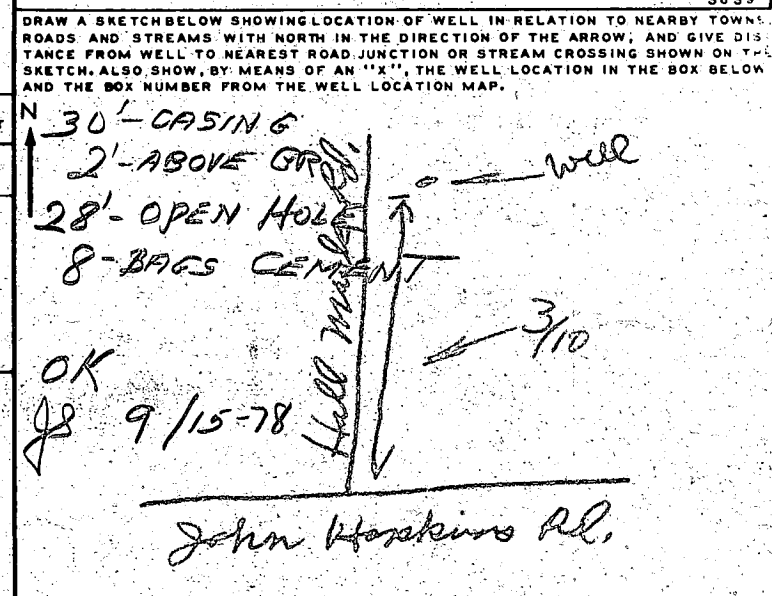 DRAW A SKETCH BELOW SHOWING LOCATION OF WELL IN RELATION TO NEARBY TOWNS,
ROADS AND STREAMS WITH NORTH IN THE DIRECTION OF THE ARROW, AND GIVE DIS
TANCE FROM WELL TO NEAREST ROAD JUNCTION OR STREAM CROSSING SHOWN ON THE
SKETCH. ALSO SHOW, BY MEANS OF AN "X", THE WELL LOCATION IN THE BOX BELOW
AND THE BOX NUMBER FROM THE WELL LOCATION MAP.
N
30'-CASING
2'-ABOVE GR
28'-OPEN HOLE
8-BAGS CEMENT
well
Hall Rd.
3/10
OK
JS 9/15-78
John Hopkins Rd.